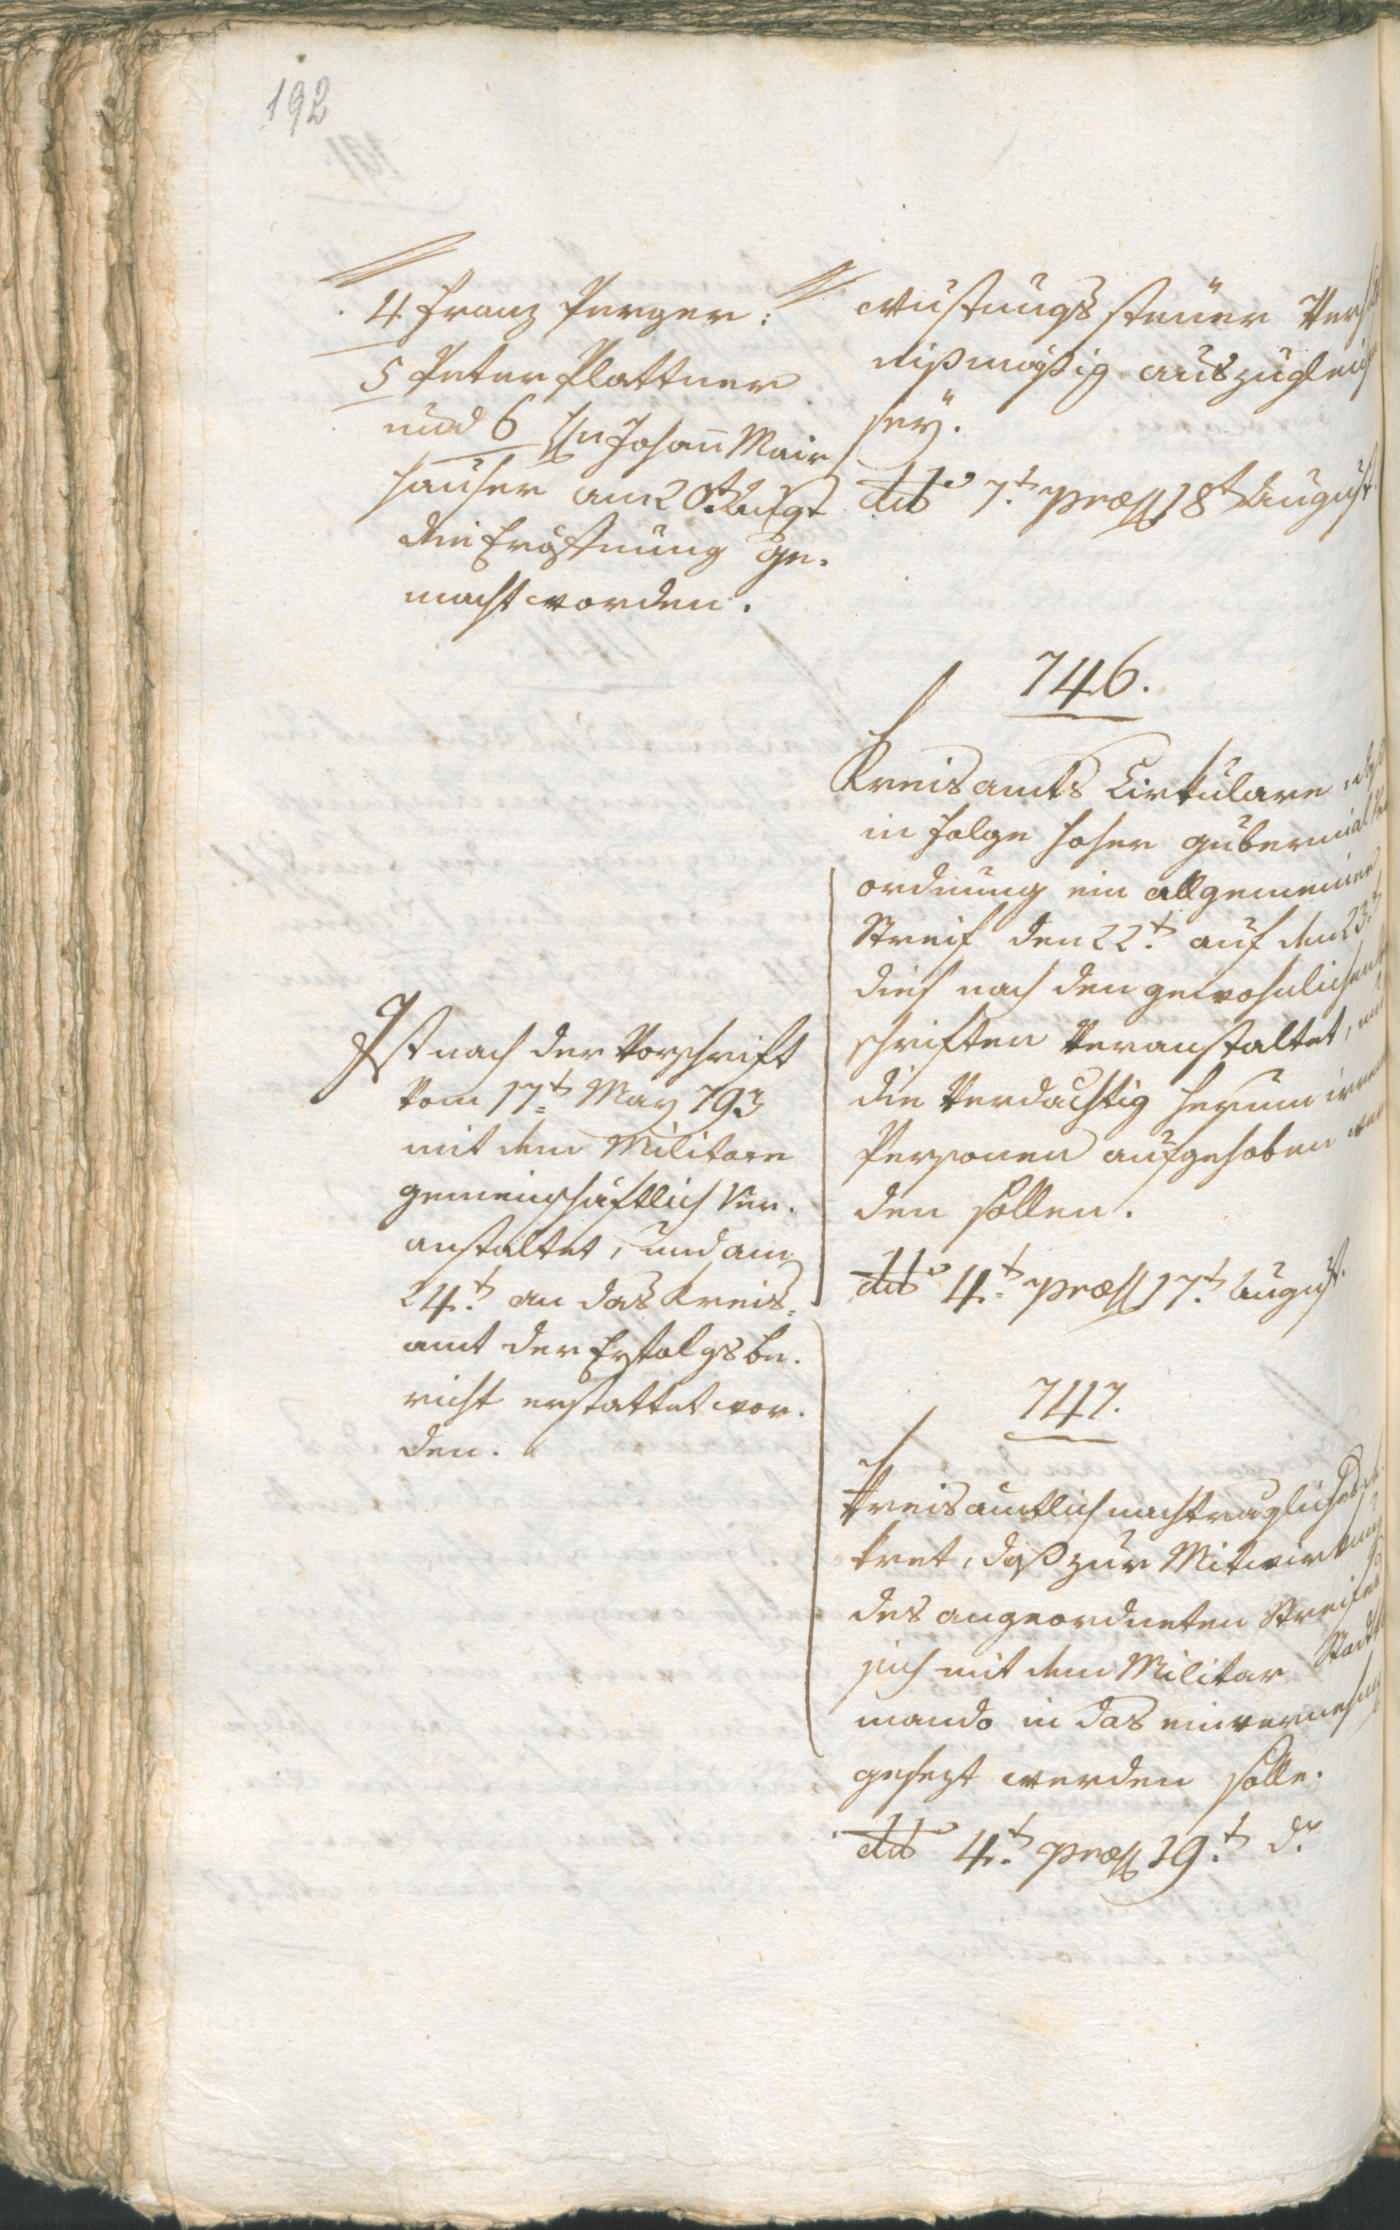 192
4 Franz Perger:
5 Peter Plattner
und 6 H Johan̅ Mair
hauser am 20t Augt
die Eröffnung ge-
macht worden.
wustungs steuer Verh
nißmäßig auszugleich
seÿ.
dto 7t. præss 18t August.
746.
Kreisamts Cirkulare,
in folge hoher gubernial
ordnung ein allgemeiner
Streif den 22t. auf den 23t
dieß nach den gewohnlichen
schriften veranstaltet,
die verdachtig herum
Personen aufgehoben wer
den sollen.
dto 4t. præss 17t. August.
Ist nach der Vorschrift
vom 17t May 793
mit dem Militare
gemeinschäftlich ver-
anstaltet, und am
24t. an das Kreis-
amt der Erfolgsbe-
richt erstattet wor-
den.
747.
Kreisamtlich nachtragliches De
kret, daß zur Mitwirkung
des angeordneten Streifes
sich mit dem Militar Stadt
mando in das einvernehm
gesezt werden solle.
dto 4t. præss 19t. do